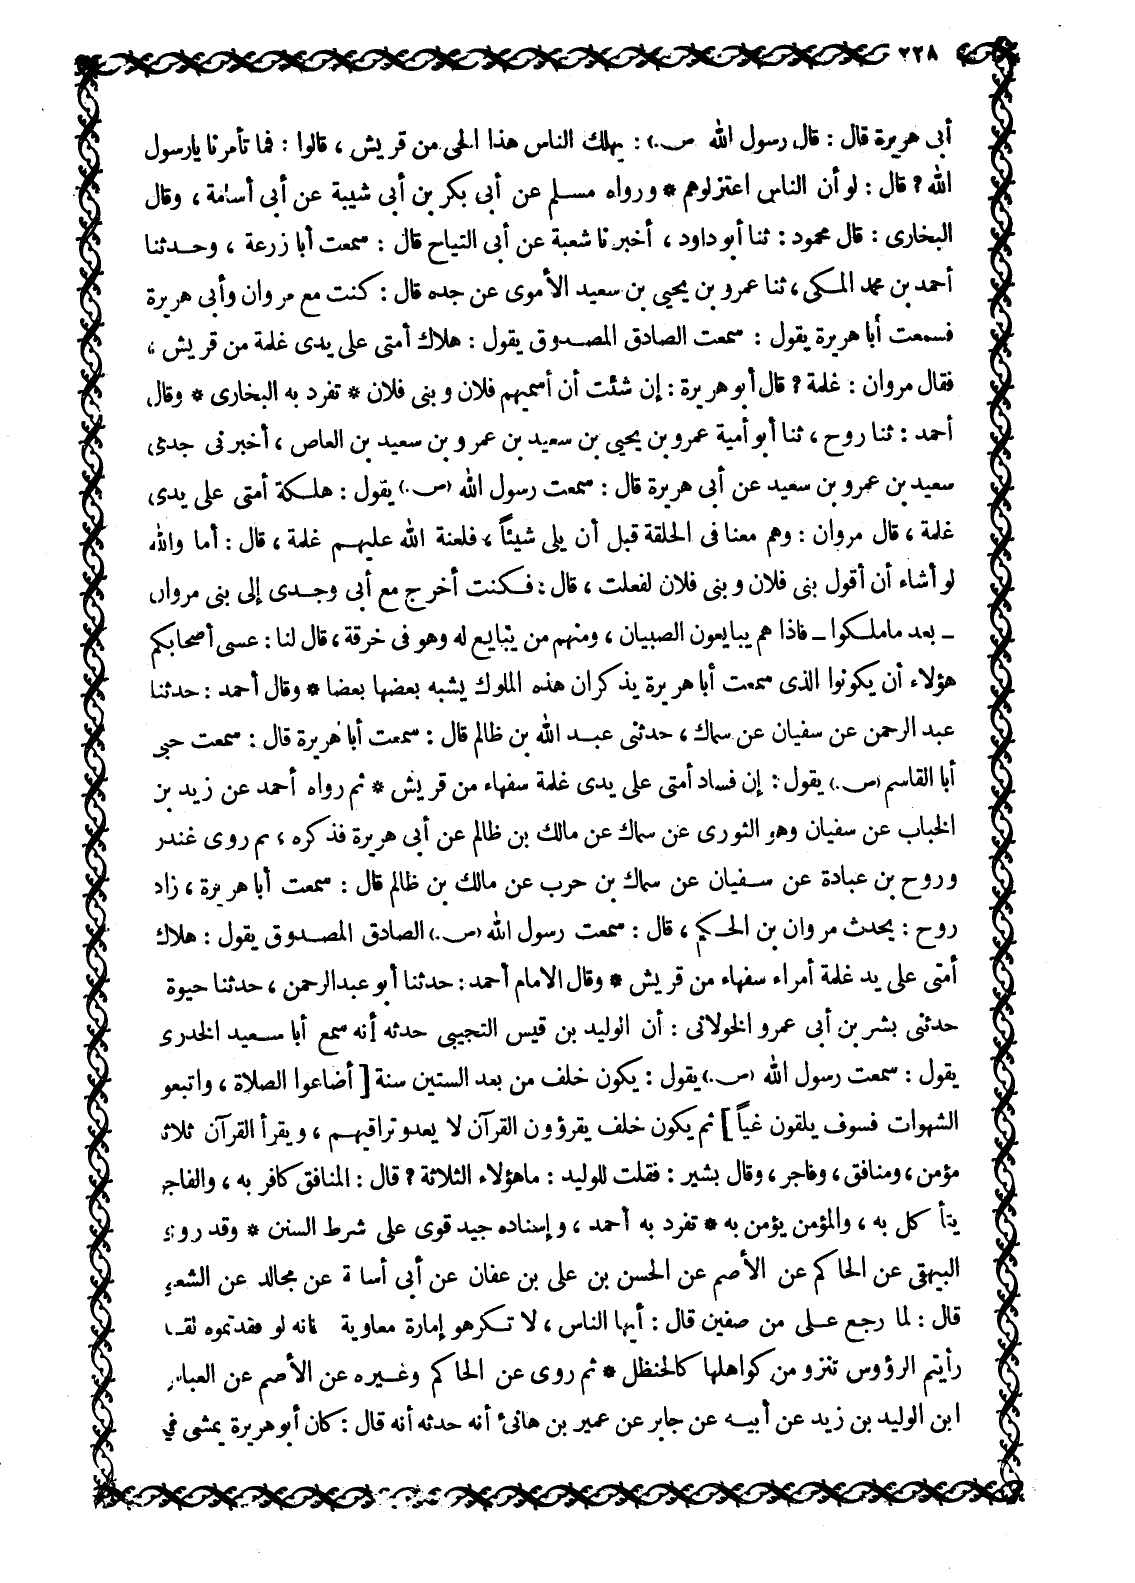 ٢٢٨
أبى هريرة قال : قال رسول الله (ص.) : يهلك الناس هذا الحى من قريش ، قالوا : فما تأمرنا يارسول
الله ? قال : لو أن الناس اعتزلوهم * ورواه مسلم عن أبى بكر بن أبى شيبة عن أبى أسامة ، وقال
البخارى : قال محمود : ثنا أبو داود ، أخبرنا شعبة عن أبى التياح قال : سمعت أبا زرعة ، وحدثنا
أحمد بن محمد المكى ، ثنا عمرو بن يحيى بن سعيد الأموى عن جده قال : كنت مع مروان وأبى هريرة
فسمعت أبا هريرة يقول : سمعت الصادق المصدوق يقول : هلاك أمتى على يدى غلمة من قريش ،
فقال مروان : غلمة ? قال أبو هريرة : إن شئت أن أسميهم فلان وبنى فلان * تفرد به البخارى * وقال
أحمد : ثنا روح ، ثنا أبو أمية عمرو بن يحيى بن سعيد بن عمرو بن سعيد بن العاص ، أخبرنى جدى
سعيد بن عمرو بن سعيد عن أبى هريرة قال : سمعت رسول الله (ص.) يقول : هلكة أمتى على يدى
غلمة ، قال مروان : وهم معنا فى الحلقة قبل أن يلى شيئاً ، فلعنة الله عليهم غلمة ، قال : أما والله
لو أشاء أن أقول بنى فلان وبنى فلان لفعلت ، قال : فكنت أخرج مع أبى وجدى إلى بنى مروان
ـ بعد ماملكوا ـ فاذا هم يبايعون الصبيان ، ومنهم من يبايع له وهو فى خرقة ، قال لنا : عسى أصحابكم
هؤلاء أن يكونوا الذى سمعت أبا هريرة يذكر ان هذه الملوك يشبه بعضها بعضا * وقال أحمد : حدثنا
عبد الرحمن عن سفيان عن سماك ، حدثنى عبد الله بن ظالم قال : سمعت أبا هريرة قال : سمعت حبى
أبا القاسم (ص.) يقول : إن فساد أمتى على يدى غلمة سفهاء من قريش * ثم رواه أحمد عن زيد بن
الخباب عن سفيان وهو الثورى عن سماك عن مالك بن ظالم عن أبى هريرة فذكره ، ثم روى غندر
وروح بن عبادة عن سفيان عن سماك بن حرب عن مالك بن ظالم قال : سمعت أبا هريرة ، زاد
روح : يحدث مروان بن الحكم ، قال : سمعت رسول الله (ص.) الصادق المصدوق يقول : هلاك
أمتى على يد غلمة أمراء سفهاء من قريش * وقال الامام أحمد : حدثنا أبو عبدالرحمن ، حدثنا حيوة
حدثنى بشر بن أبى عمرو الخولانى : أن الوليد بن قيس التجيبى حدثه أنه سمع أبا سعيد الخدرى
يقول : سمعت رسول الله (ص.) يقول : يكون خلف من بعد الستين سنة [ أضاعوا الصلاة ، واتبعو
الشهوات فسوف يلقون غياً ] ثم يكون خلف يقرؤون القرآن لا يعدو تراقيهم ، ويقرأ القرآن ثلاثـ
مؤمن ، ومنافق ، وفاجر ، وقال بشير : فقلت للوليد : ماهؤلاء الثلاثة ? قال : المنافق كافر به ، والفاجر
يتأكل به ، والمؤمن يؤمن به * تفرد به أحمد ، وإسناده جيد قوى على شرط السنن * وقد روى
البيهقى عن الحاكم عن الأصم عن الحسن بن على بن عفان عن أبى أسا ة عن مجالد عن الشعبى
قال : لما رجع على من صفين قال : أيها الناس ، لا تكرهو إمارة معاوية فانه لو فقدتموه لقد
رأيتم الرؤوس تنزو من كواهلها كالحنظل * ثم روى عن الحاكم وغيره عن الأصم عن العباس
ابن الوليد بن زيد عن أبيه عن جابر عن عمير بن هانئ أنه حدثه أنه قال : كان أبو هريرة يمشى فى